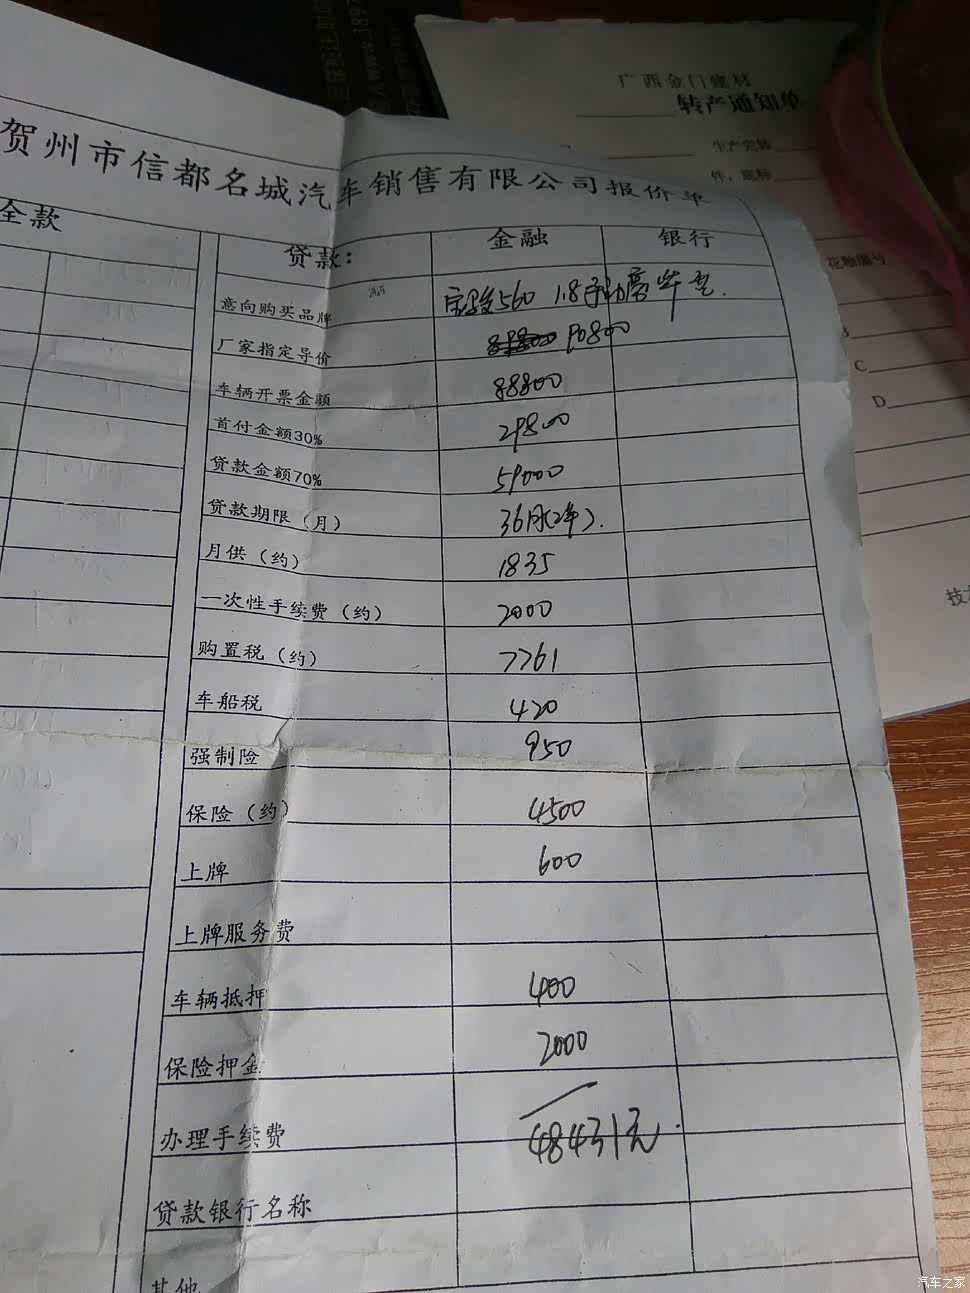 广西金门建材
转产通知单
生产完转
花釉编号
C
D
贺州市信都名城汽车销售有限公司报价单
全款
贷款： 金融 银行
意向购买品牌 宝骏560 1.8手动豪华型.
厂家指定导价 90800
车辆开票金额 88800
首付金额30% 29800
贷款金额70% 59000
贷款期限（月） 36月(2年).
月供（约） 1835
一次性手续费（约） 2000
购置税（约） 7761
车船税 420
强制险 950
保险（约） 4500
上牌 600
上牌服务费
车辆抵押 400
保险押金 2000
办理手续费 48431元.
贷款银行名称
其他
汽车之家